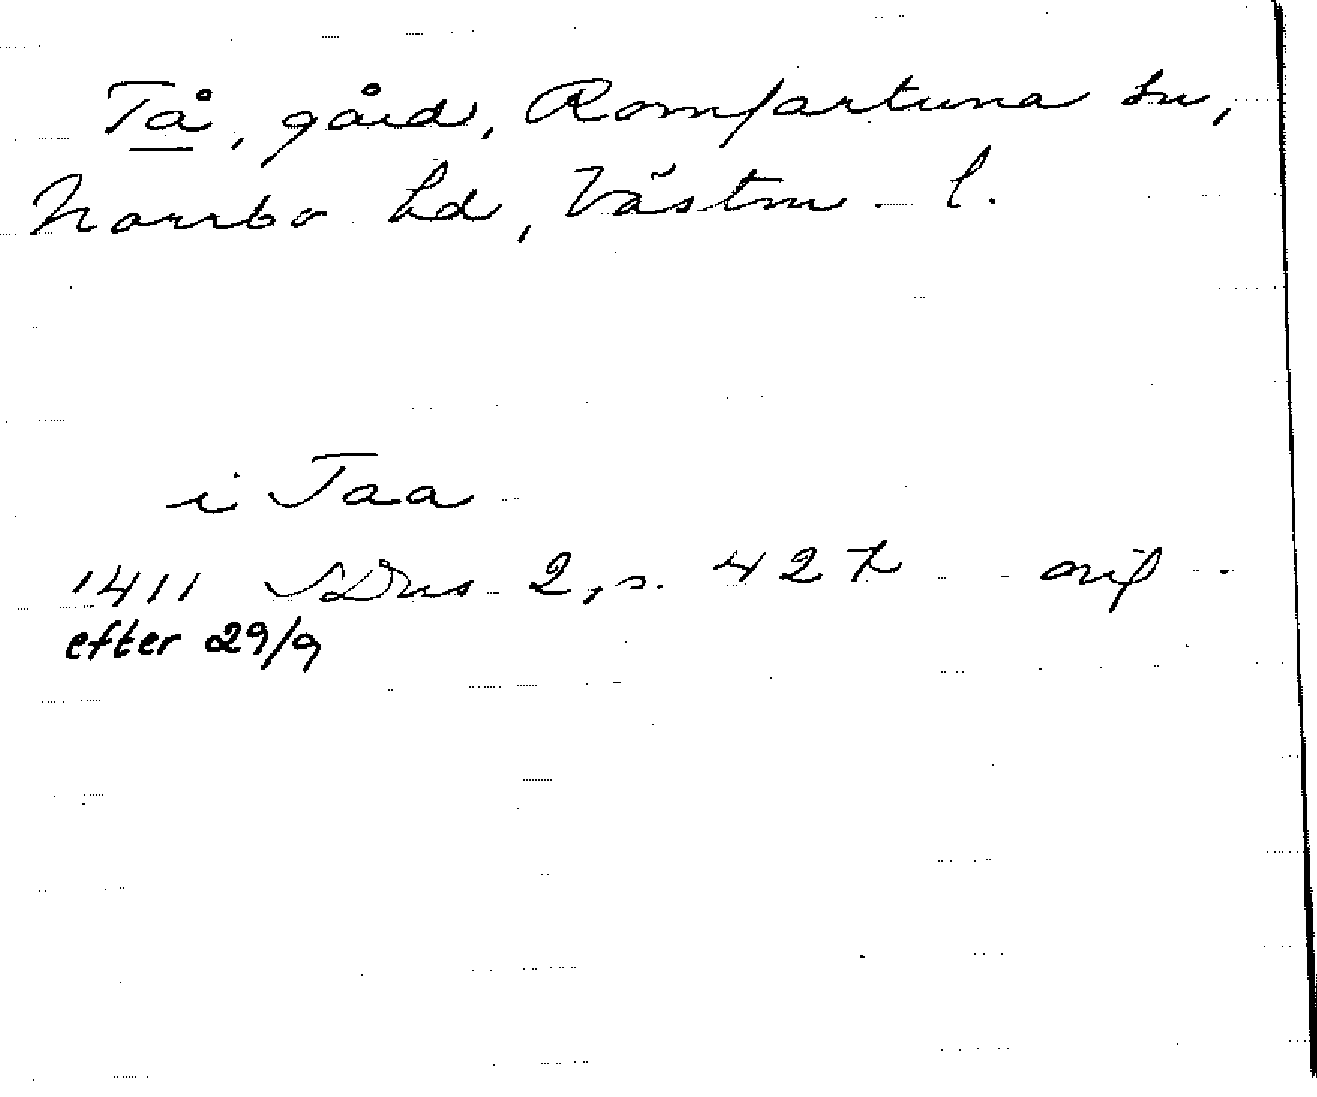 Tå, gård, Romfartuna sn,
Norrbo hd, Västm. l.
i Taa
1411 SDns 2, s. 427 or
efter 29/9